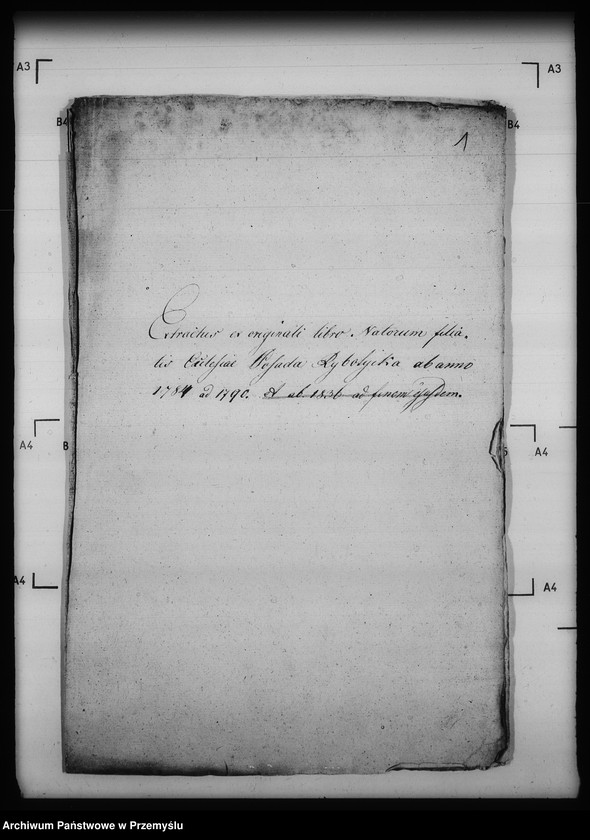 A3
A3
B4
B4
1
Extractus ex originali libro Natorum filia-
lis Ecclesiae Posada Rybotycka ab anno
1784 ad 1790. et ab 1836 ad finem
A4
B
A4
A4
A4
Archiwum Państwowe w Przemyślu